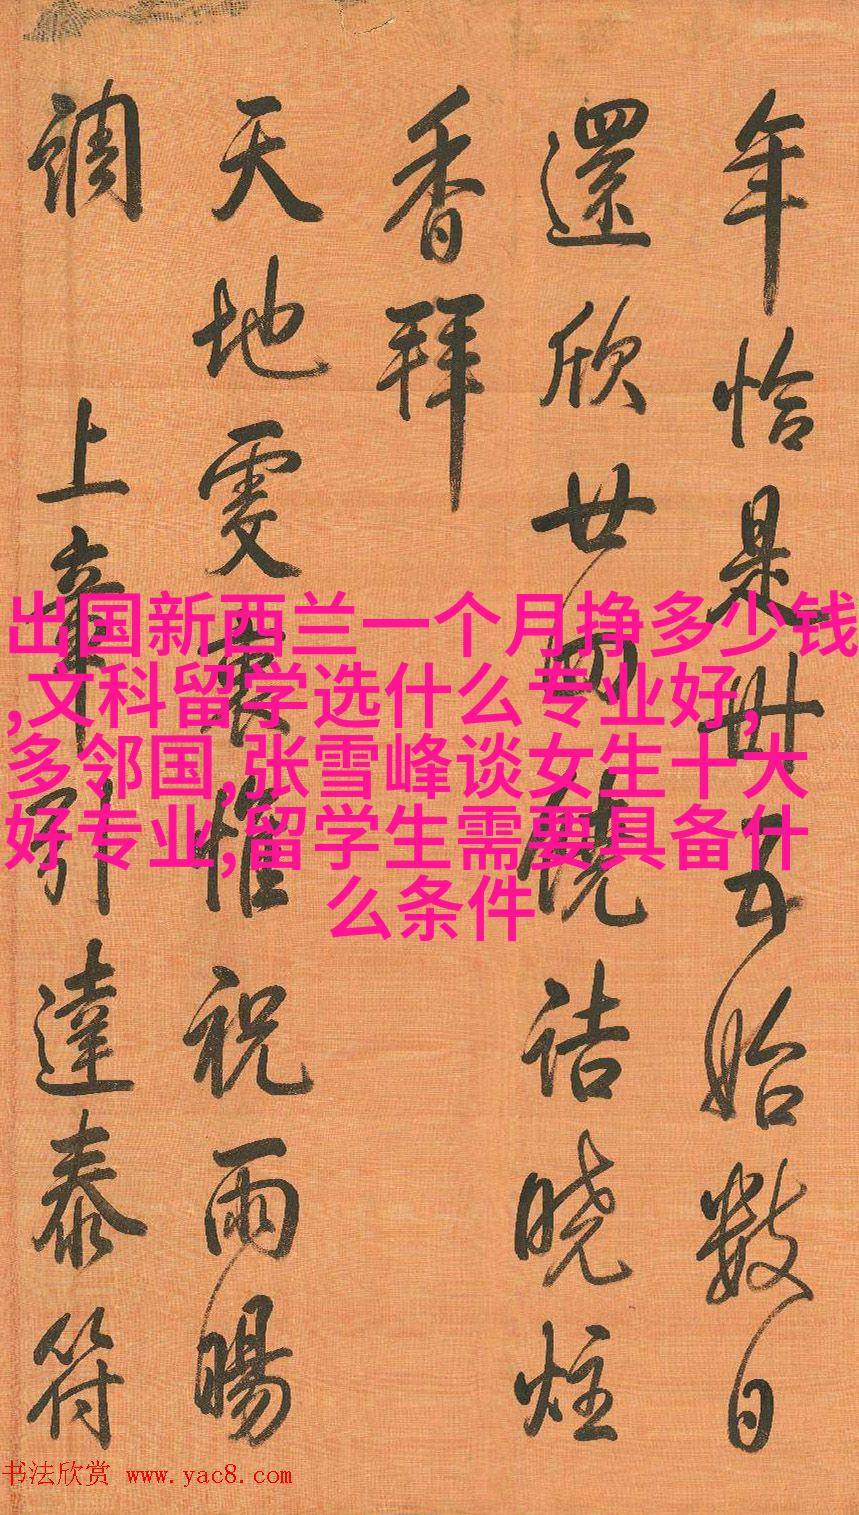 年恰是卅五始數日
還欣廿四饒詰曉炷
香拜
天地虔衷惟祝雨暘
調 上辛引達泰符
出国新西兰一个月挣多少钱
,文科留学选什么专业好,
多邻国,张雪峰谈女生十大
好专业,留学生需要具备什
么条件
书法欣赏 www.yac8.com